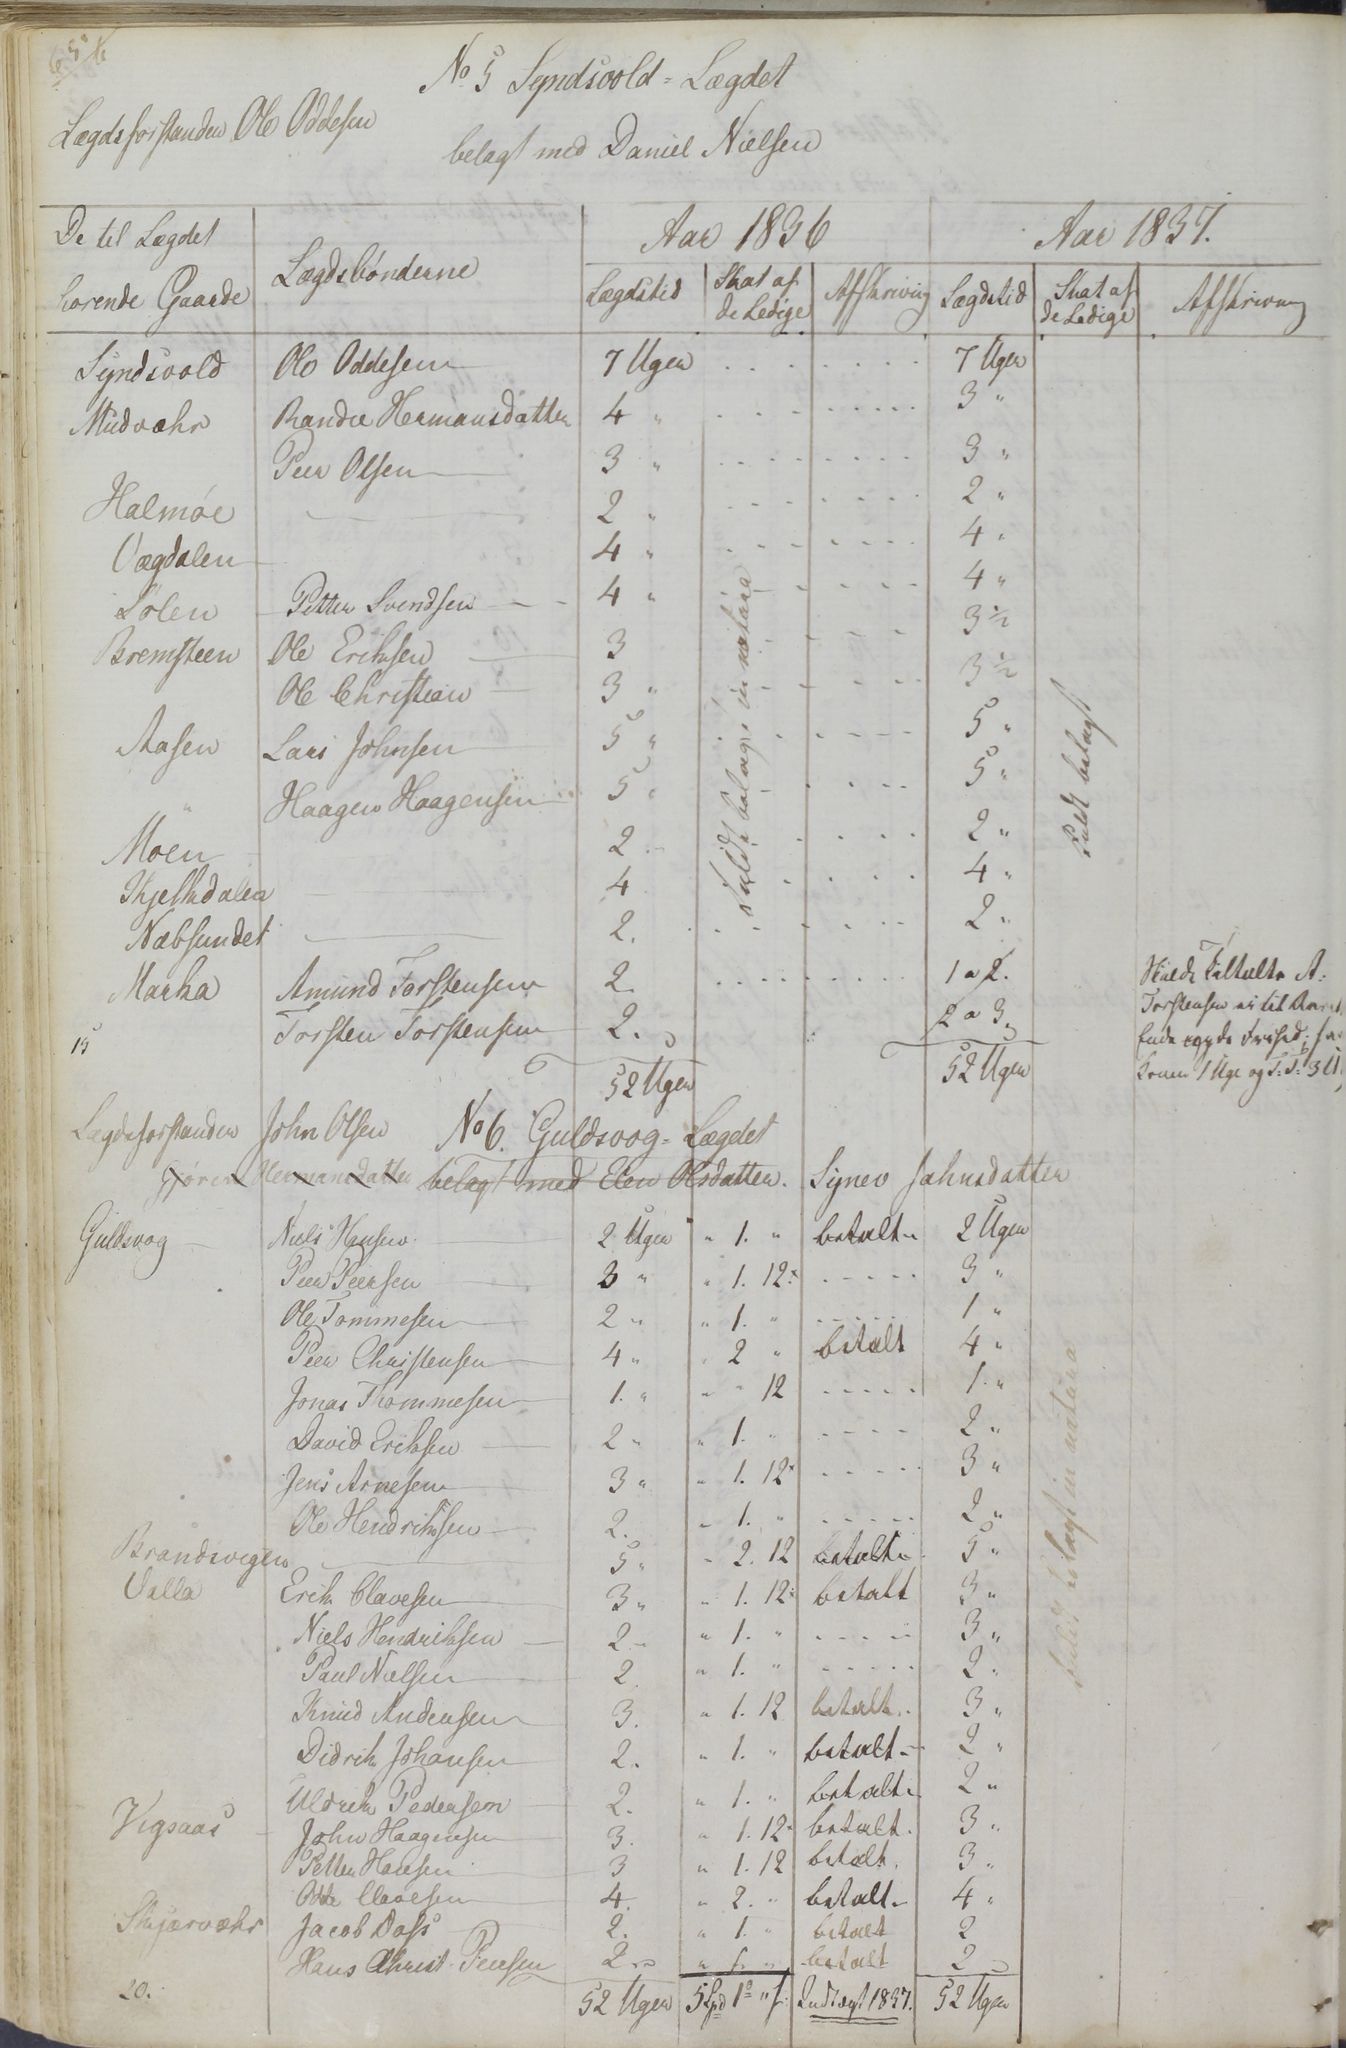 No 5 Syndsvold-Lægdet
Lægdsforstanden Ole Oddesen
belagt med Daniel Nielsen
De til Lægdet hørende Gaarde | Lægdsbønderne | Aar 1836 | Aar 1837.
Lægdstid | Skat af de Ledige | Afskriving | Lægdstid | Skat af de Ledige | Afskrivning
Syndsvold Ole Oddesen 7 Uger 7 Uger
Mudværhr Randie Hermansdatter 4 " 3 "
Peer Olsen 3 " 3 "
Halmøe 2 " 2 "
Vægdalen 4 " 4 "
Solen Petter Svendsen 4 " 4 "
Bremsteen Ole Eriksen 3 3 1/2
Ole Christian 3 " 3 1/2
Aasen Lars Johnsen 5 " 5 "
" Haagen Haagensen 5 " 5 "
Moen 2 2 "
Kjelkdalen 4 4 "
Næbsundet 2. 2 "
Marka Amund Torstensen 2. 1 a 2.
Torsten Torstensen 2. 2 a 3
15 52 Uger 52 Uger
fuldt belagt in natura
fuldt belagt
Torstensen
1 Uge og T: T: 3 U
Lægdsforstanden John Olsen No 6. Guldsvog-Lægdet
Hermansdatter belagt med Elen Olsdatter. Signev Jahnsdatter
Guldsvog Niels Hansen 2 Uger " 1. " betalt 2 Uger
Peer Peersen 3 " " 1. 12 3 "
Ole Tommesen 2 " " 1. " 1 "
Peer Christensen 4 " " 2 " betalt 4 "
Jonas Thommesen 1. " " " 12 1. "
David Eriksen 2 " " 1. " 2 "
Jens Arnesen 3 " " 1. 12 3 "
Ole Hendriksen 2. " 1. " 2 "
Brandsvigen 5 " " 2. 12 betalt 5 "
Valla Erik Clavesen 3 " " 1. 12 betalt 3 "
Niels Hendriksen 2 " 1. " 3 "
Paul Nielsen 2 " 1. " 2 "
Knud Andersen 3. " 1. 12 betalt 3 "
Didrik Johansen 2. " 1. " betalt 2 "
Uldrik Pedersen 2. " 1. " betalt 2 "
Vigsaas John Haagensen 3. " 1. 12 betalt. 3 "
Petter Hansen 3 " 1. 12 betalt. 3 "
Odde Clavesen 4. " 2. " betalt 4 "
Skjærværhr Jacob Dass 2. " 1. " betalt 2
Hans Christ. Peersen 2 " 1. " betalt 2
20. 52 Uger 5 Spd 1 " " Indtægt 1837. 52 Uger
fuldt belagt in natura